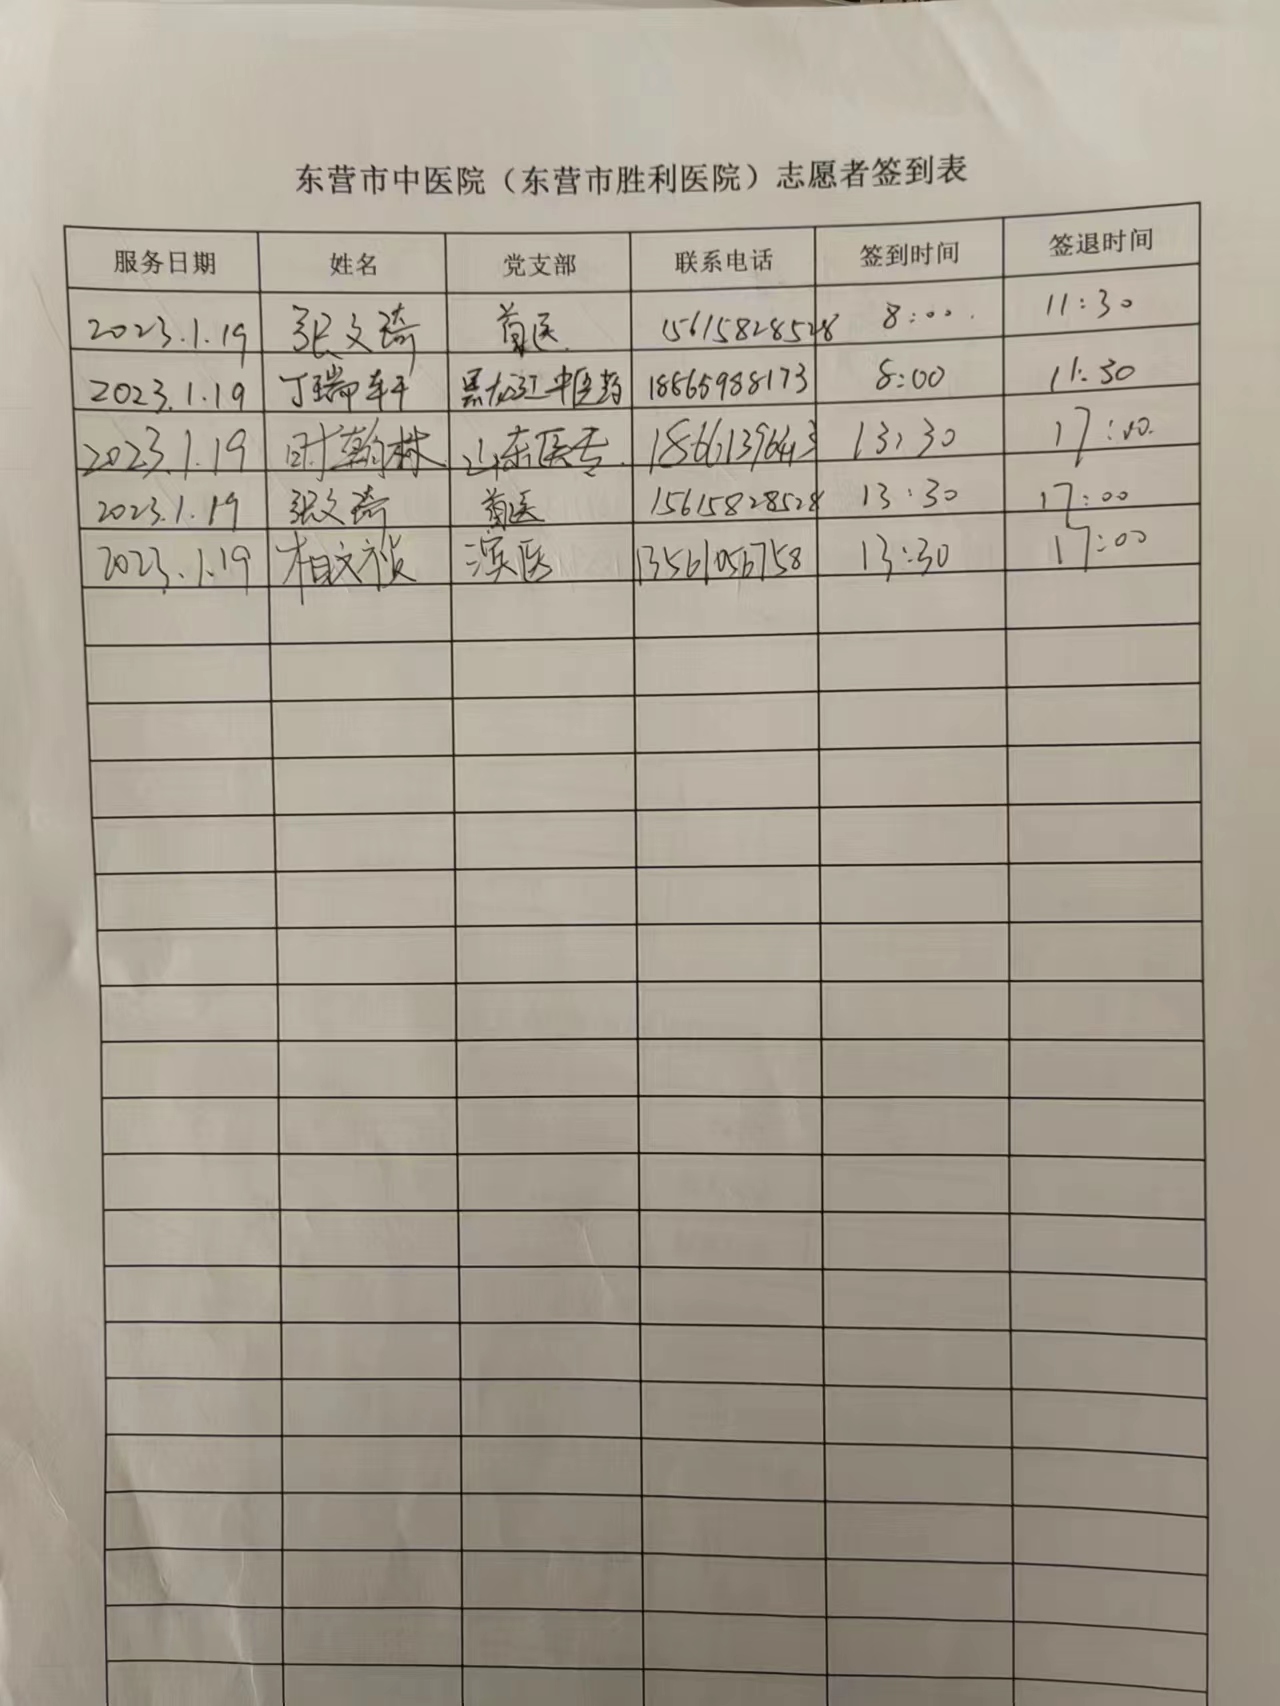 东营市中医院（东营市胜利医院）志愿者签到表
服务日期 姓名 党支部 联系电话 签到时间 签退时间
2023.1.19 张文琦 首医 15615828528 8:00 11:30
2023.1.19 丁瑞轩 黑龙江中医药 18865988173 8:00 11:30
2023.1.19 时翰林 山东医专 13:30 17:00
2023.1.19 张文琦 首医 15615828528 13:30 17:00
2023.1.19 柏文祯 滨医 13561056758 13:30 17:00